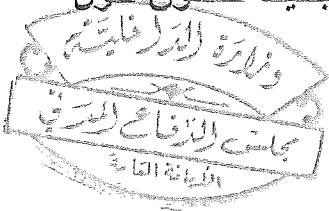 وزارة الداخلية
مجلس الدفاع المدني
الأمانة العامة